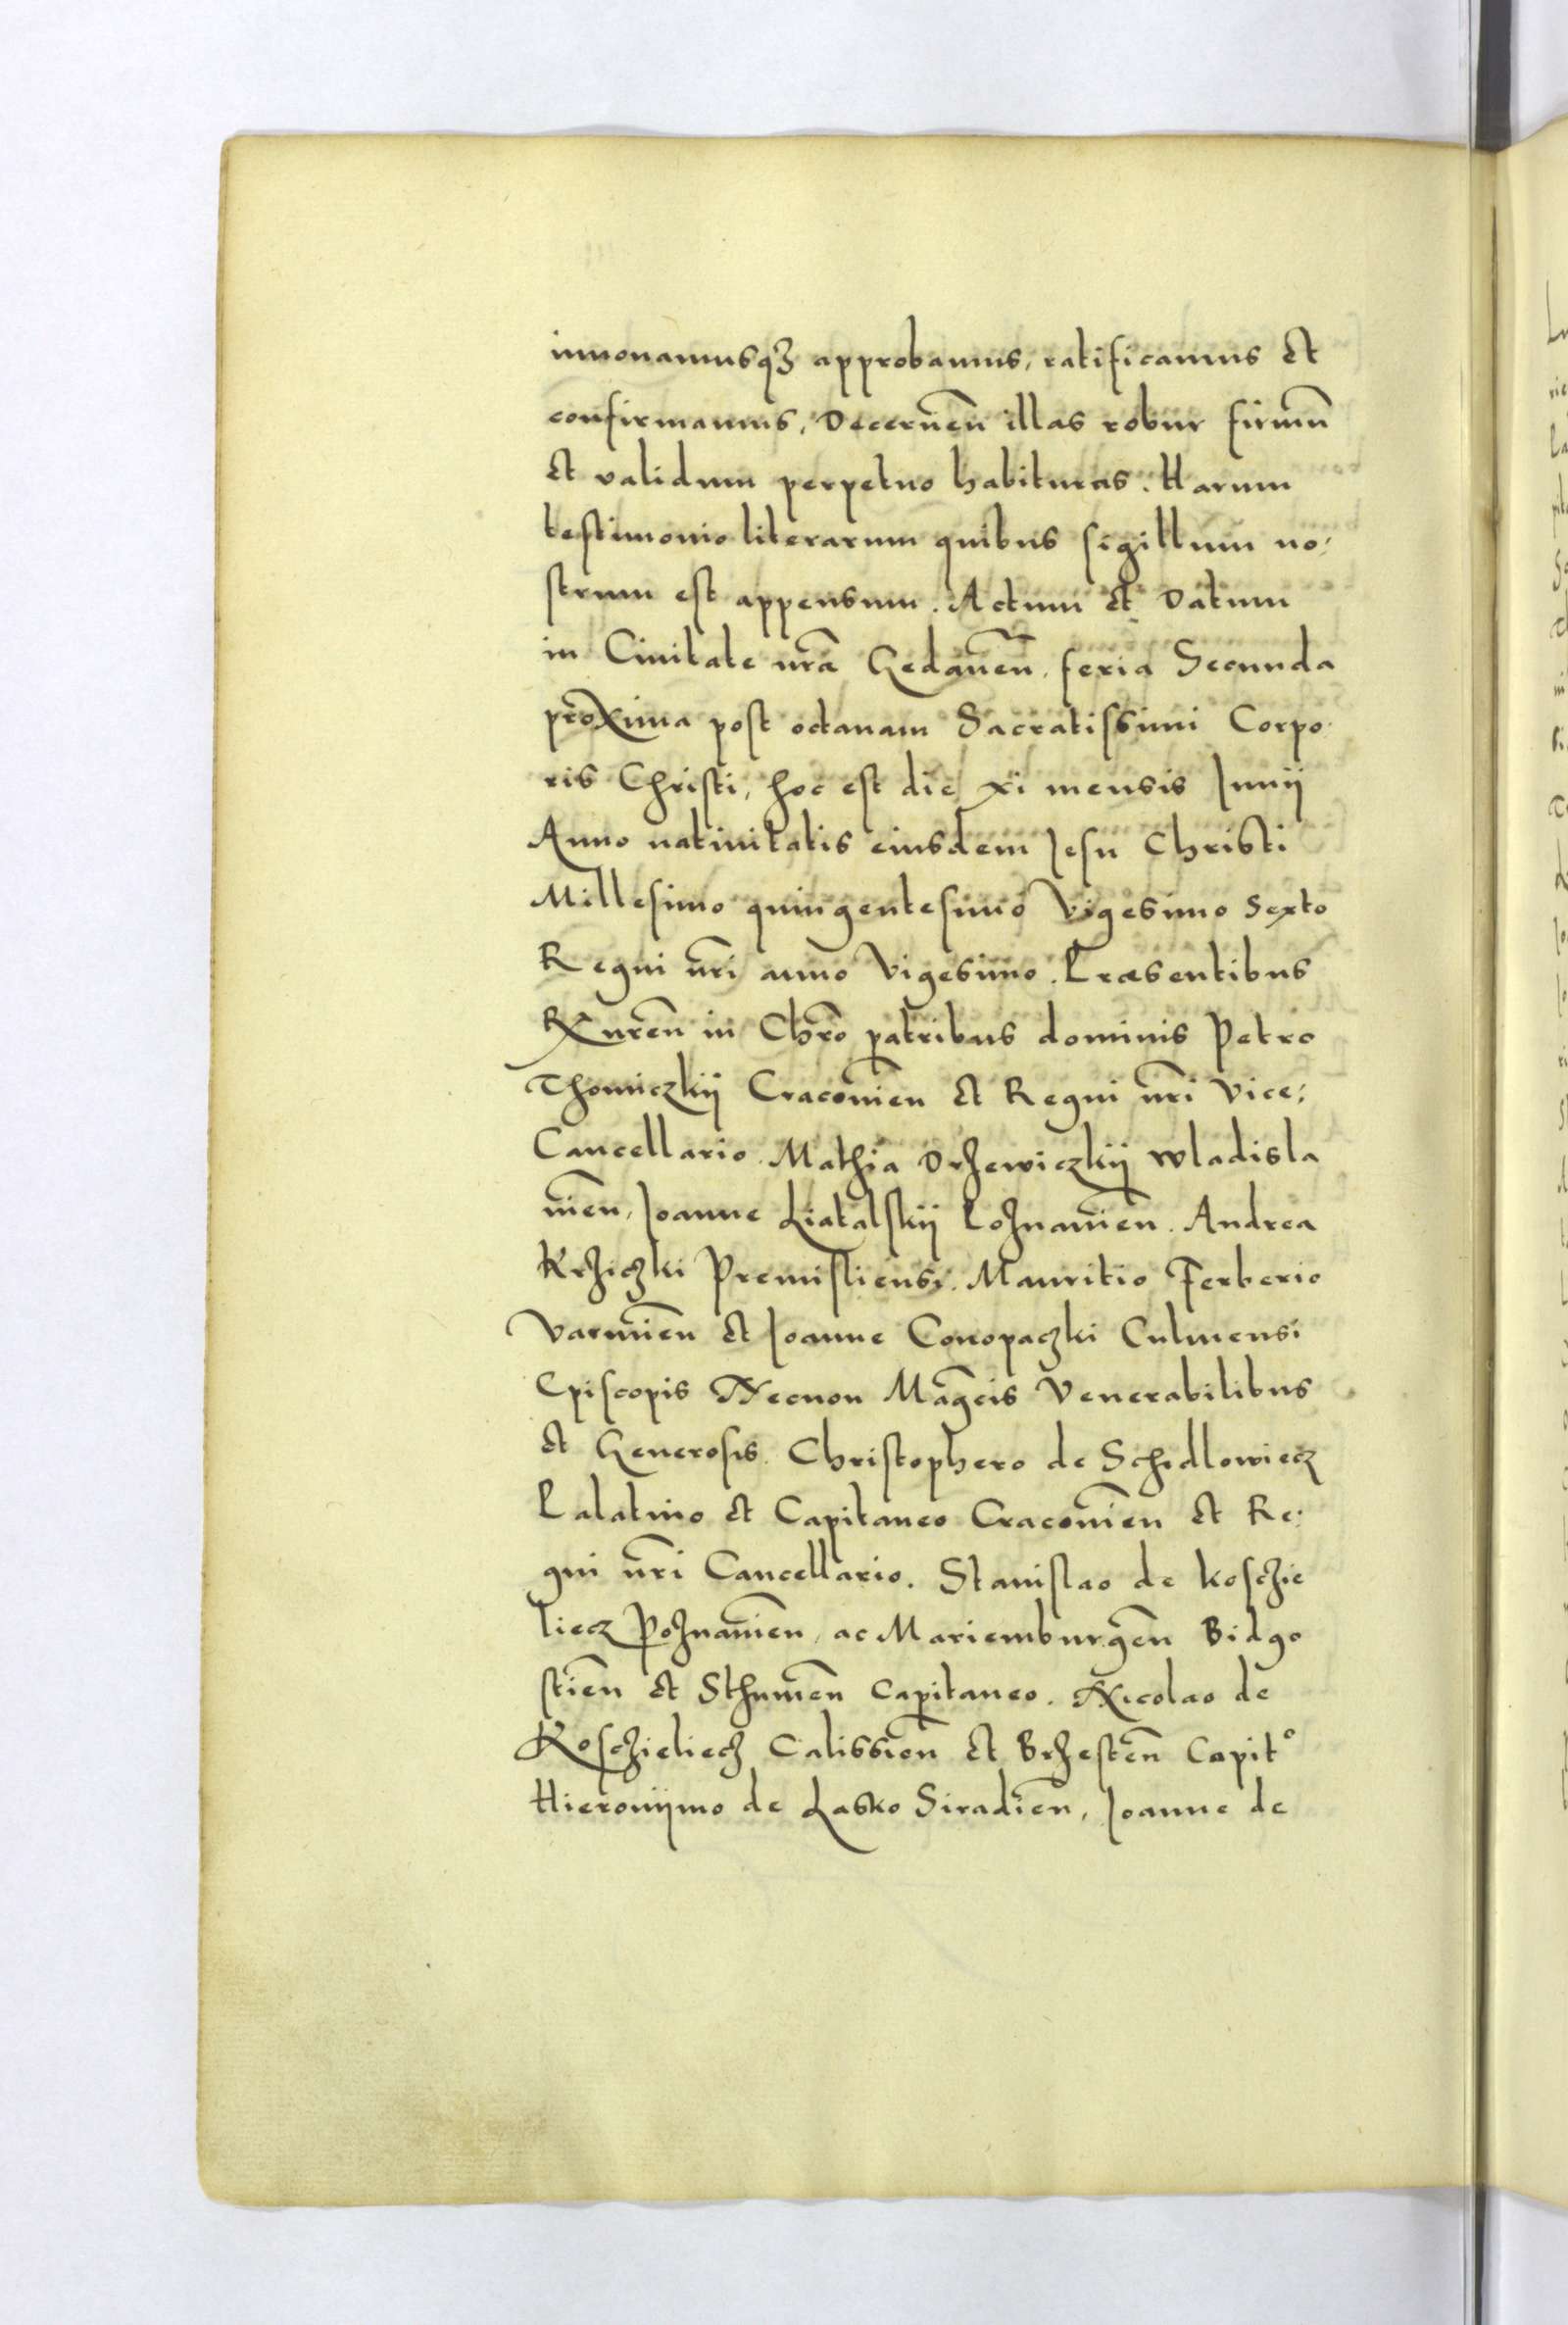 innouamusqꝫ approbamus, ratificamus et
confirmamus, Decernen̄ illas robur firmū
et validum perpetuo habituras. Harum
testimonio literarum quibus sigillum no-
strum est appensum. Actum et Datum
in Ciuitate nr̄a Gedanen̄, feria Secunda
proxima post octauam Sacratissimi Corpo-
ris Christi, hoc est die xi mensis Junij
Anno natiuitatis eiusdem Jesu Christi
Millesimo quingentesimo Vigesimo Sexto
Regni nr̄i anno Vigesimo. Præsentibus
Rx̄uren̄ in Chr̄o patribus dominis Petro
Thomiczkij Cracouien̄ et Regni nr̄i Vice-
Cancellario. Mathia Drzewiczkij Wladisla
uien̄, Joanne Liatalskij Poznanien̄. Andrea
Krziczki Premisliensi. Mauritio Ferberio
Varmien̄ et Joanne Conopaczki Culmensi
Episcopis Necnon Mag̅cis Venerabilibus
et Generosis. Christophero de Schidlowiecz
Palatino et Capitaneo Cracouien̄ et Re-
gni nr̄i Cancellario. Stanislao de Koschie
liecz Poznanien̄, ac Mariemburgen̄ Bidgo
stien̄ et Sthumen̄ Capitaneo. Nicolao de
Koschieliecz Calissien̄ et Brzesten̄ Capitº
Hieronijmo de Lasko Siradien̄, Joanne de